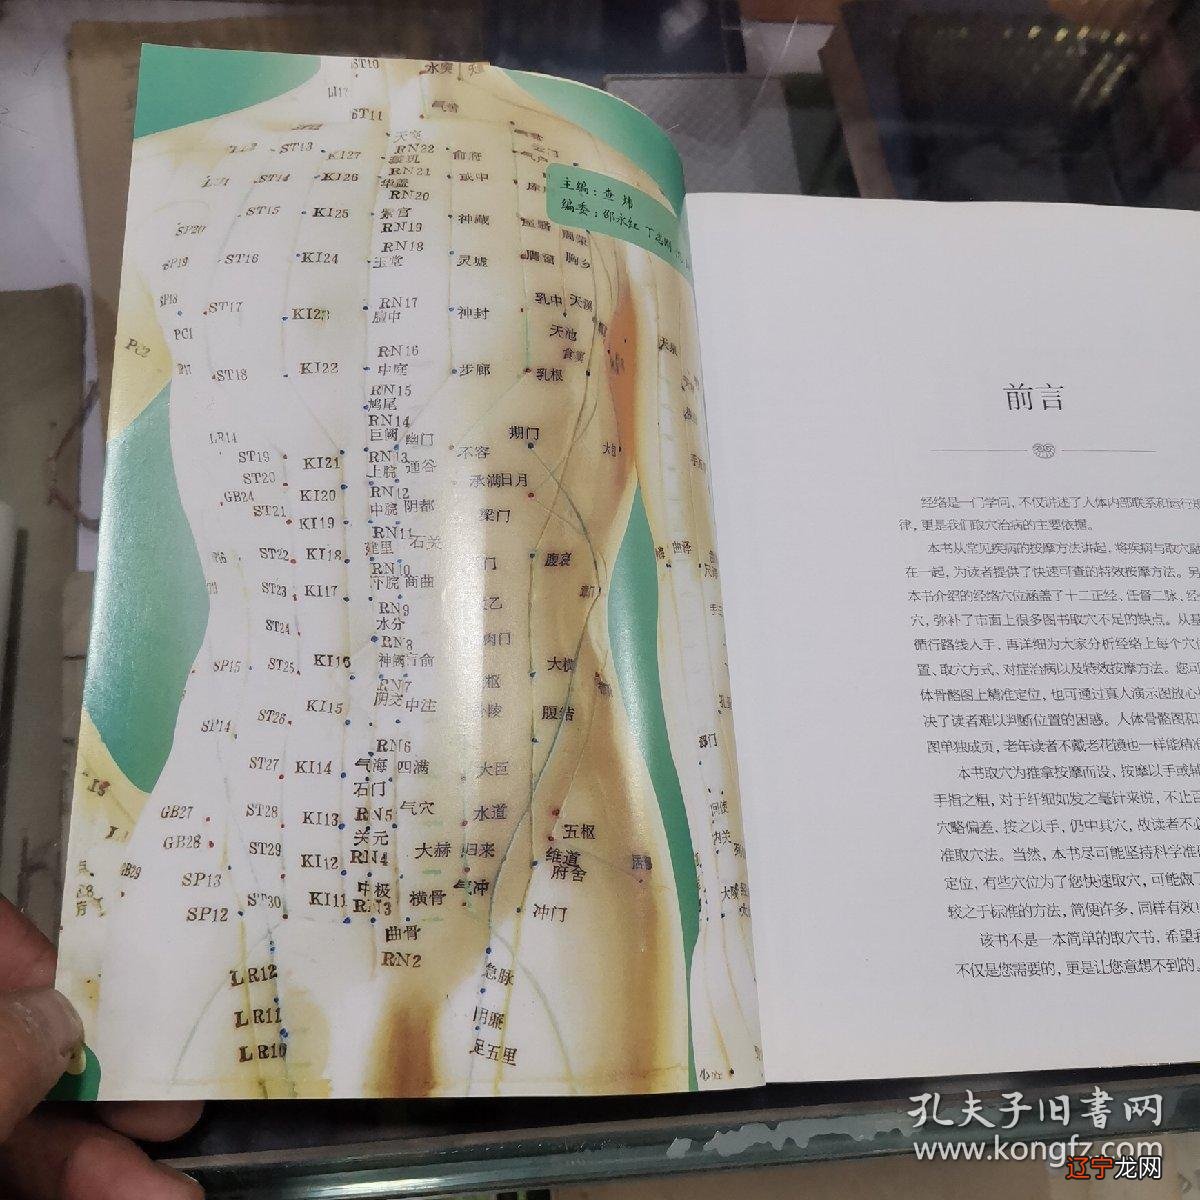 ST10
水突
气舍
ST11
天突
ST13
KI27
RN22
璇玑
俞府
RN21
ST14
KI26
华盖
或中
RN20
主编：查 炜
编委：邵永红
ST15
KI25
紫宫
神藏
RN19
SP20
RN18
SP19
ST16
KI24
玉堂
灵墟
胸乡
SP18
ST17
KI23
RN17
膻中
神封
乳中
天溪
PC1
天池
PC2
RN16
食窦
ST18
KI22
中庭
步廊
乳根
RN15
鸠尾
RN14
LR14
巨阙
幽门
期门
ST19
KI21
RN13
上脘
通谷
不容
ST20
承满
日月
GB24
KI20
RN12
ST21
中脘
阴都
梁门
KI19
RN11
建里
石关
ST22
KI18
腹哀
RN10
下脘
商曲
ST23
KI17
RN9
水分
ST24
RN8
SP15
ST25
KI16
神阙
肓俞
大横
RN7
阴交
中注
ST26
KI15
腹结
SP14
RN6
ST27
KI14
气海
四满
大巨
石门
气穴
GB27
ST28
KI13
RN5
水道
五枢
GB28
关元
ST29
KI12
RN4
大赫
归来
维道
府舍
GB29
SP13
中极
气冲
ST30
KI11
RN3
横骨
SP12
冲门
曲骨
RN2
LR12
急脉
LR11
阴廉
LR10
足五里
曲泽
郄门
间使
内关
大陵
前言
经络是一门学问，不仅讲述了人体内部联系和运行规
律，更是我们取穴治病的主要依据。
本书从常见疾病的按摩方法讲起，将疾病与取穴
在一起，为读者提供了快速可查的特效按摩方法。另
本书介绍的经络穴位涵盖了十二正经、任督二脉、经
穴，弥补了市面上很多图书取穴不足的缺点。从基
循行路线入手，再详细为大家分析经络上每个穴位
置、取穴方式、对症治病以及特效按摩方法。您可
体骨骼图上精准定位，也可通过真人演示图放心
决了读者难以判断位置的困惑。人体骨骼图和
图单独成页，老年读者不戴老花镜也一样能精准
本书取穴为推拿按摩而设，按摩以手或
手指之粗，对于纤细如发之毫针来说，不止
穴略偏差，按之以手，仍中其穴，故读者不必
准取穴法。当然，本书尽可能坚持科学准
定位，有些穴位为了您快速取穴，可能做了
较之于标准的方法，简便许多，同样有效
该书不是一本简单的取穴书，希望
不仅是您需要的，更是让您意想不到的。
孔夫子旧书网
www.kongfz.com
辽宁龙网